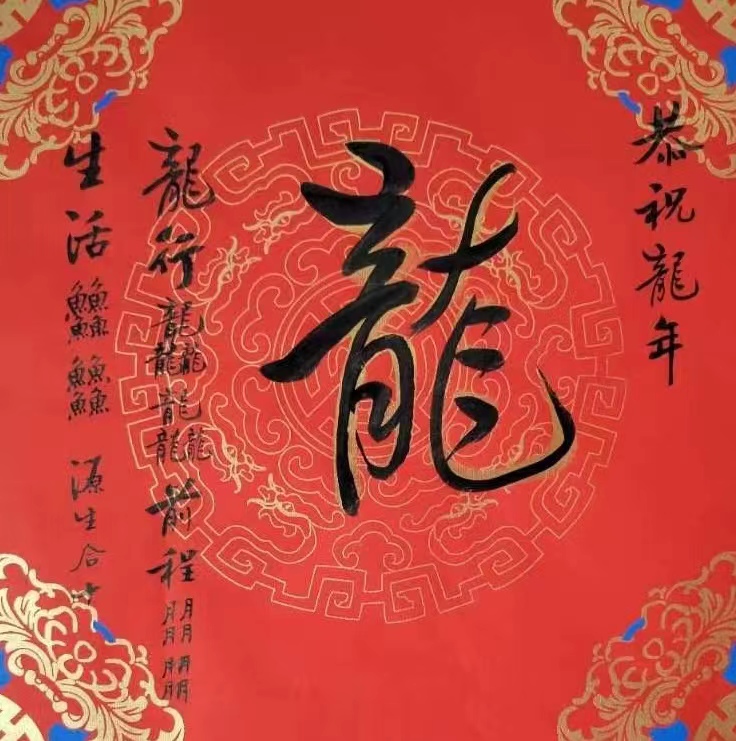 恭祝龍年
龍
龍行龘龘前程朤朤
生活䲜䲜
源生合